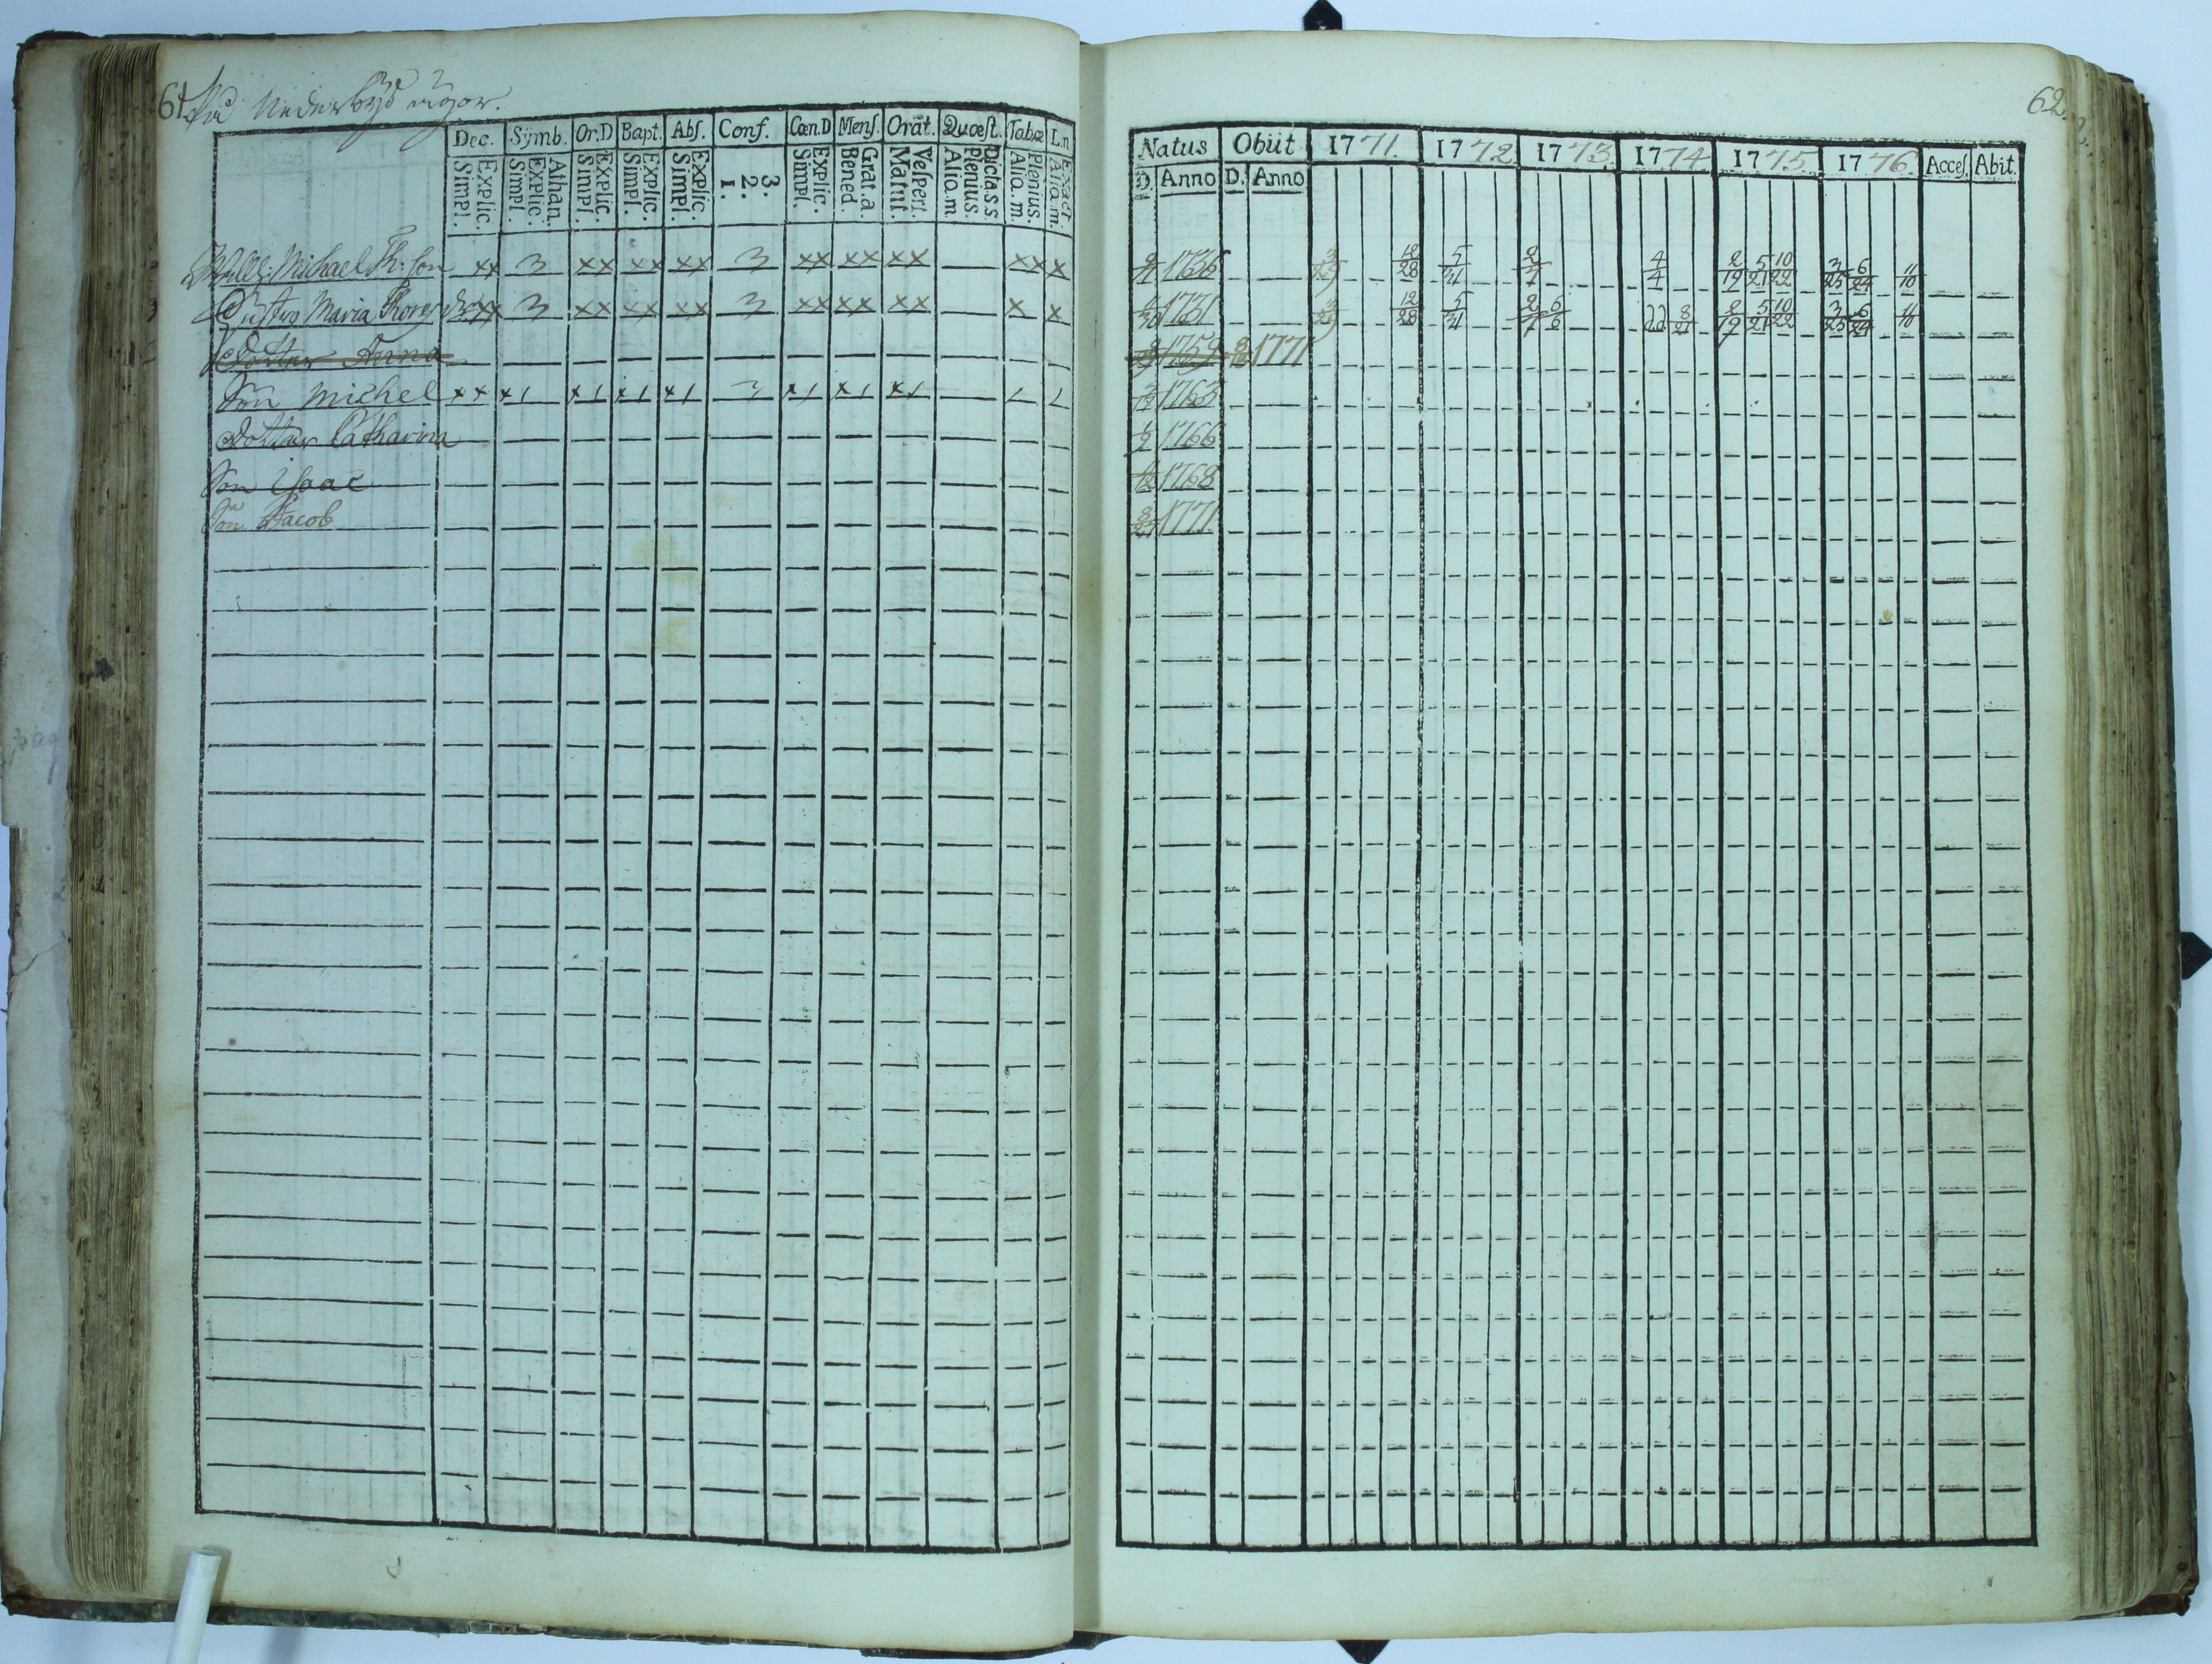 61 På Nederbyds ägor.
Dec. Symb. Or.D Bapt. Abſ. Conf. Cœn.D Menſ. Orat. Quœſt. Tabœ L.n
Explic. Simpl. Athan. Explic. Simpl. Explic. Simpl. Explic. Simpl. Explic. Simpl. 3. 2. 1. Explic. Simpl. Grat.a. Bened. Veſpert. Matut. Dicta.s.s. Plenius. Alio.m Plenius. Alio.m. Exacr Alio.m.
Michael Th: Son xx 3 xx xx xx 3 xx xx xx xx x
Hustro Maria xx 3 xx xx xx 3 xx xx xx x x
Dotter Anna
Son Michel xx x1 x1 x1 x1 3 x1 x1 x1 1 1
Dotter Catharina
Son Isaac
Son Jacob
62.
Natus Obiit 1771. 1772. 1773. 1774. 1775. 1776. Acceſ. Abit.
D. Anno D. Anno
1736 12/28 5/31 4/4 2/19 5/21 10/22 3/25 6/24
1731 12/28 5/31 6/6 22 8/21 2/19 5/21 10/22 3/25 6/24
1759 1771
1763
1766
1768
1771